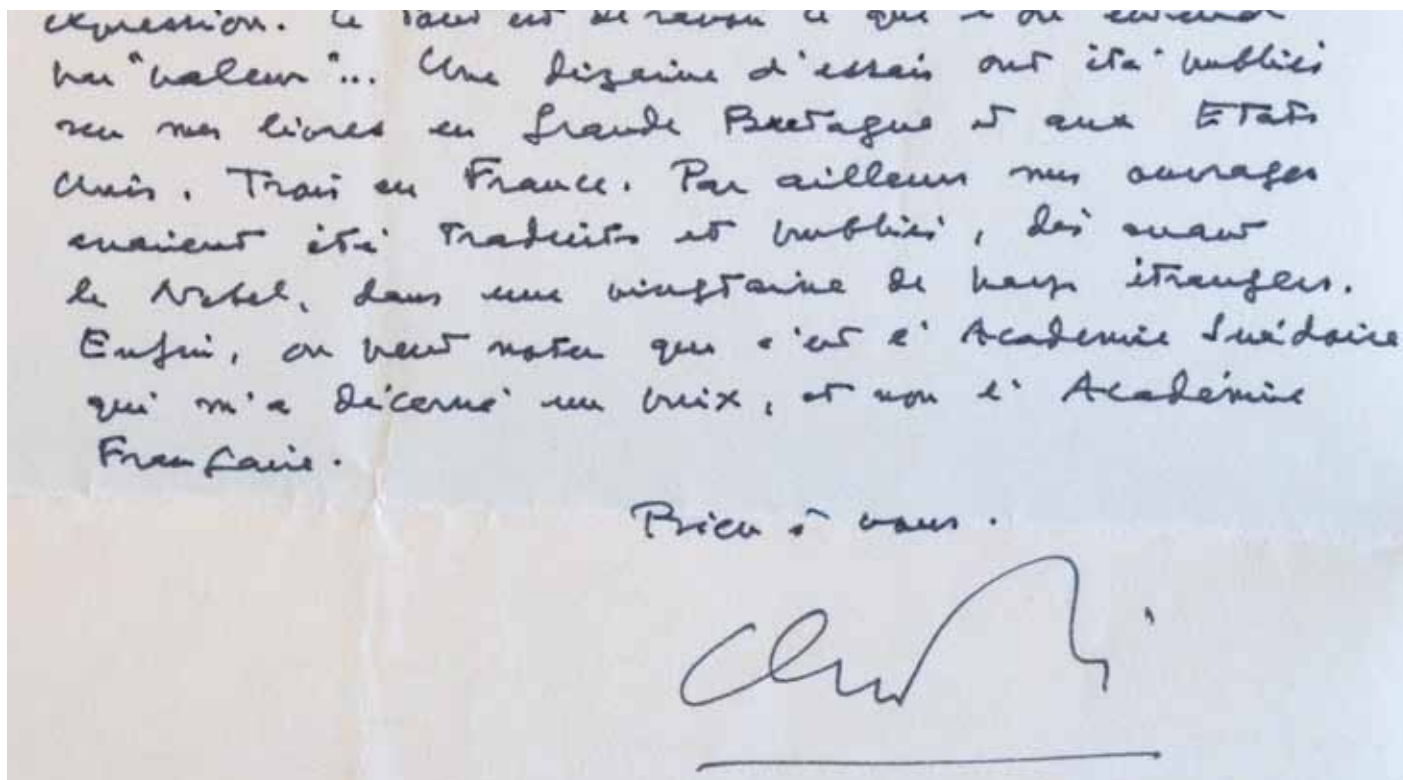 expression. Le tout est de savoir ce que l'on entend
par "valeur"... Une dizaine d'essais ont été publiés
sur mes livres en Grande Bretagne et aux Etats
Unis. Trois en France. Par ailleurs mes ouvrages
avaient été traduits et publiés, dès avant
le Nobel, dans une vingtaine de pays étrangers.
Enfin, on peut noter que c'est l'Academie Suédoise
qui m'a décerné un prix, et non l'Académie
Française.
Bien à vous.